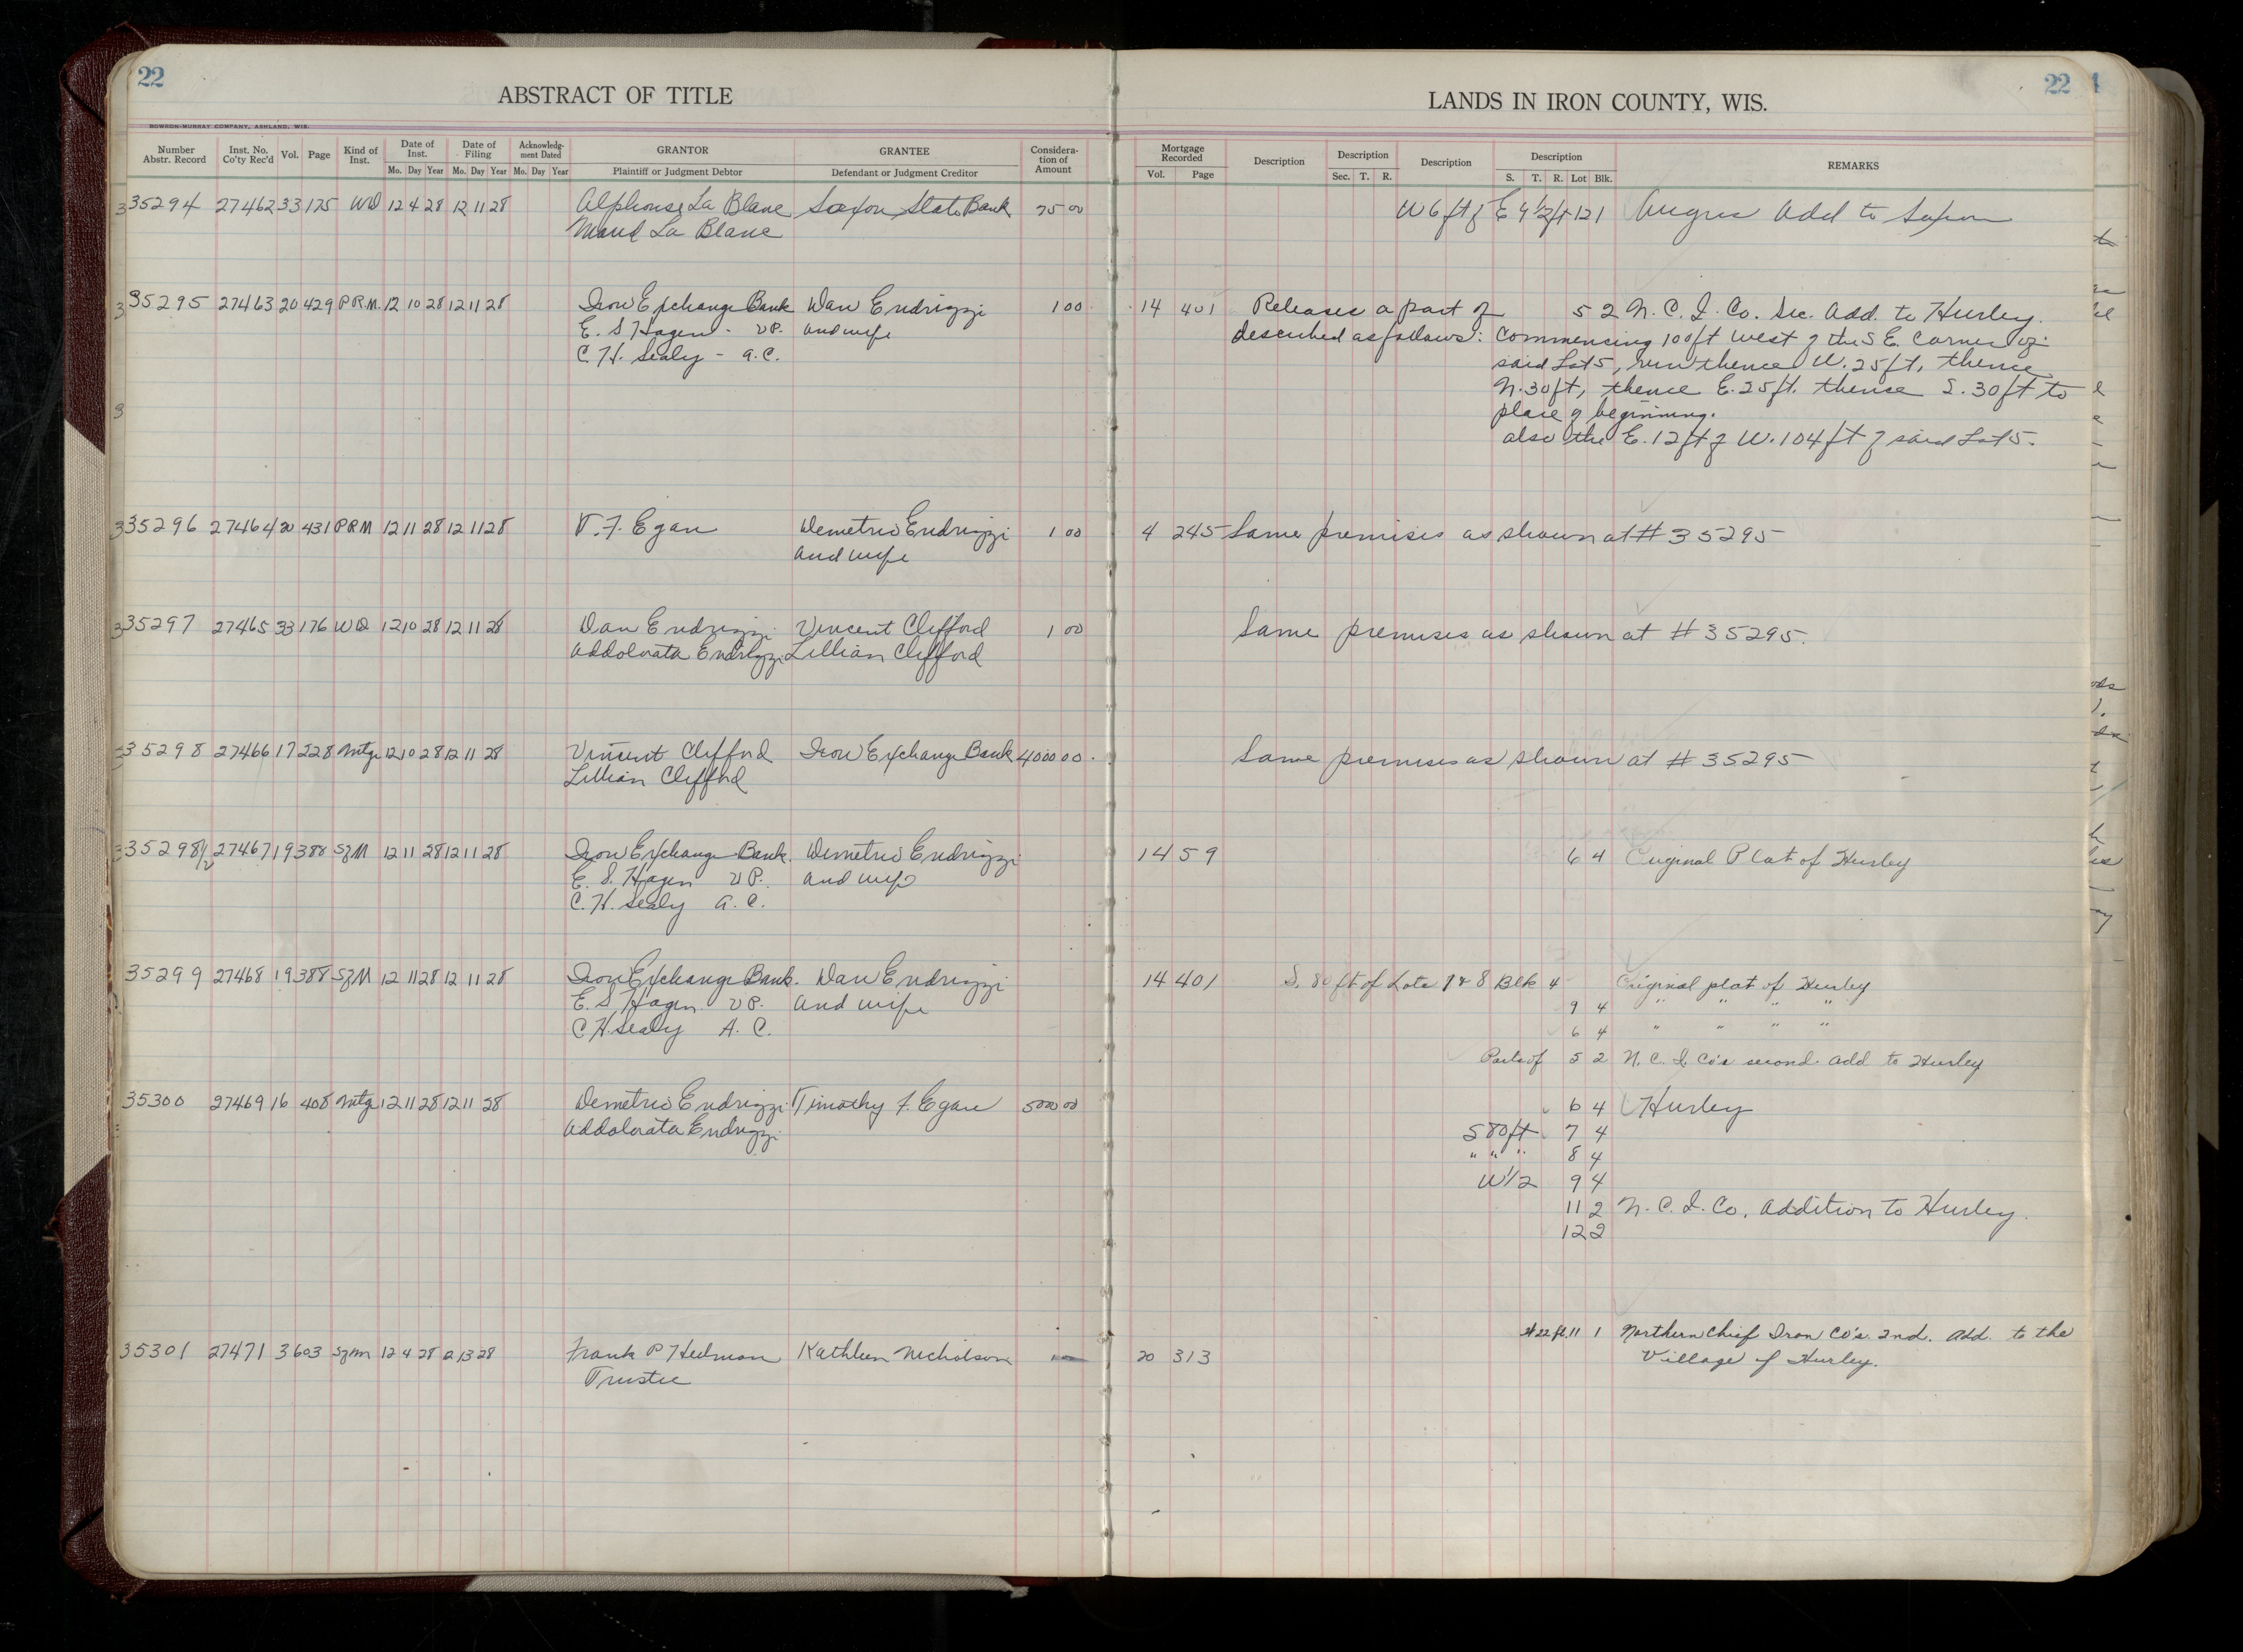 22
ABSTRACT OF TITLE
BOWRON-MURRAY COMPANY, ASHLAND, WIS.
Number Abstr. Record Inst. No. Co'ty Rec'd Vol. Page Kind of Inst. Date of Inst. Mo. Day Year Date of Filing Mo. Day Year Acknowledg-ment Dated Mo. Day Year GRANTOR Plaintiff or Judgment Debtor GRANTEE Defendant or Judgment Creditor Considera-tion of Amount
35294 27462 33 175 WD 12 4 28 12 11 28 Alphonse La Blanc Saxon State Bank 75 00
Maud La Blanc
35295 27463 20 429 P.R.M. 12 10 28 12 11 28 Iron Exchange Bank Dan Endrizzi 1 00
E. S Hagen - V.P. and wife
C. H. Sealy - A.C.
35296 27464 20 431 PRM 12 11 28 12 11 28 T. F. Egan Demetrio Endrizzi 1 00
and wife
35297 27465 33 176 WD 12 10 28 12 11 28 Dan Endrizzi Vincent Clifford 1 00
Addolorata Endrizzi Lillian Clifford
35298 27466 17 228 Mtg 12 10 28 12 11 28 Vincent Clifford Iron Exchange Bank 4000 00
Lillian Clifford
35298 1/2 27467 19 388 S of M 12 11 28 12 11 28 Iron Exchange Bank. Demetrio Endrizzi
E. S. Hagen V P. and wife
C. H. Sealy A. C.
35299 27468 19 388 S of M 12 11 28 12 11 28 Iron Exchange Bank. Dan Endrizzi
E. S. Hagen V P. and wife
C H Sealy A. C.
35300 27469 16 408 Mtg 12 11 28 12 11 28 Demetrio Endrizzi Timothy F. Egan 5000 00
Addolorata Endrizzi
35301 27471 3 603 S of M 12 4 28 12 13 28 Frank P Hedman Kathleen Nicholson
Trustee
22
LANDS IN IRON COUNTY, WIS.
Mortgage Recorded Vol. Page Description Description Sec. T. R. Description Description S. T. R. Lot Blk. REMARKS
W 6 ft of E 9 1/2 ft 12 1 Angus Add to Saxon
14 401 Releases a part of 5 2 N. C. I. Co. Sec. Add. to Hurley.
described as follows: Commencing 100 ft West of the S E. Corner of
said Lot 5, run thence W. 25 ft, thence
N. 30 ft, thence E. 25 ft. thence S. 30 ft to
place of beginning.
also the E. 12 ft of W. 104 ft of said Lot 5.
4 245 Same premises as shown at # 35295
Same premises as shown at # 35295.
Same premises as shown at # 35295
14 59 6 4 Original Plat of Hurley
14 401 S. 80 ft of Lots 7 & 8 Blk 4 Original plat of Hurley
9 4 " " " "
6 4 " " " "
Parts of 5 2 N. C. I. Co's second add to Hurley
6 4 Hurley
S 80 ft 7 4
" " " 8 4
W 1/2 9 4
11 2 N. C. I. Co. Addition to Hurley.
12 2
22 ft. 11 1 Northern Chief Iron Co's. 2nd. Add. to the
20 313 Village of Hurley.